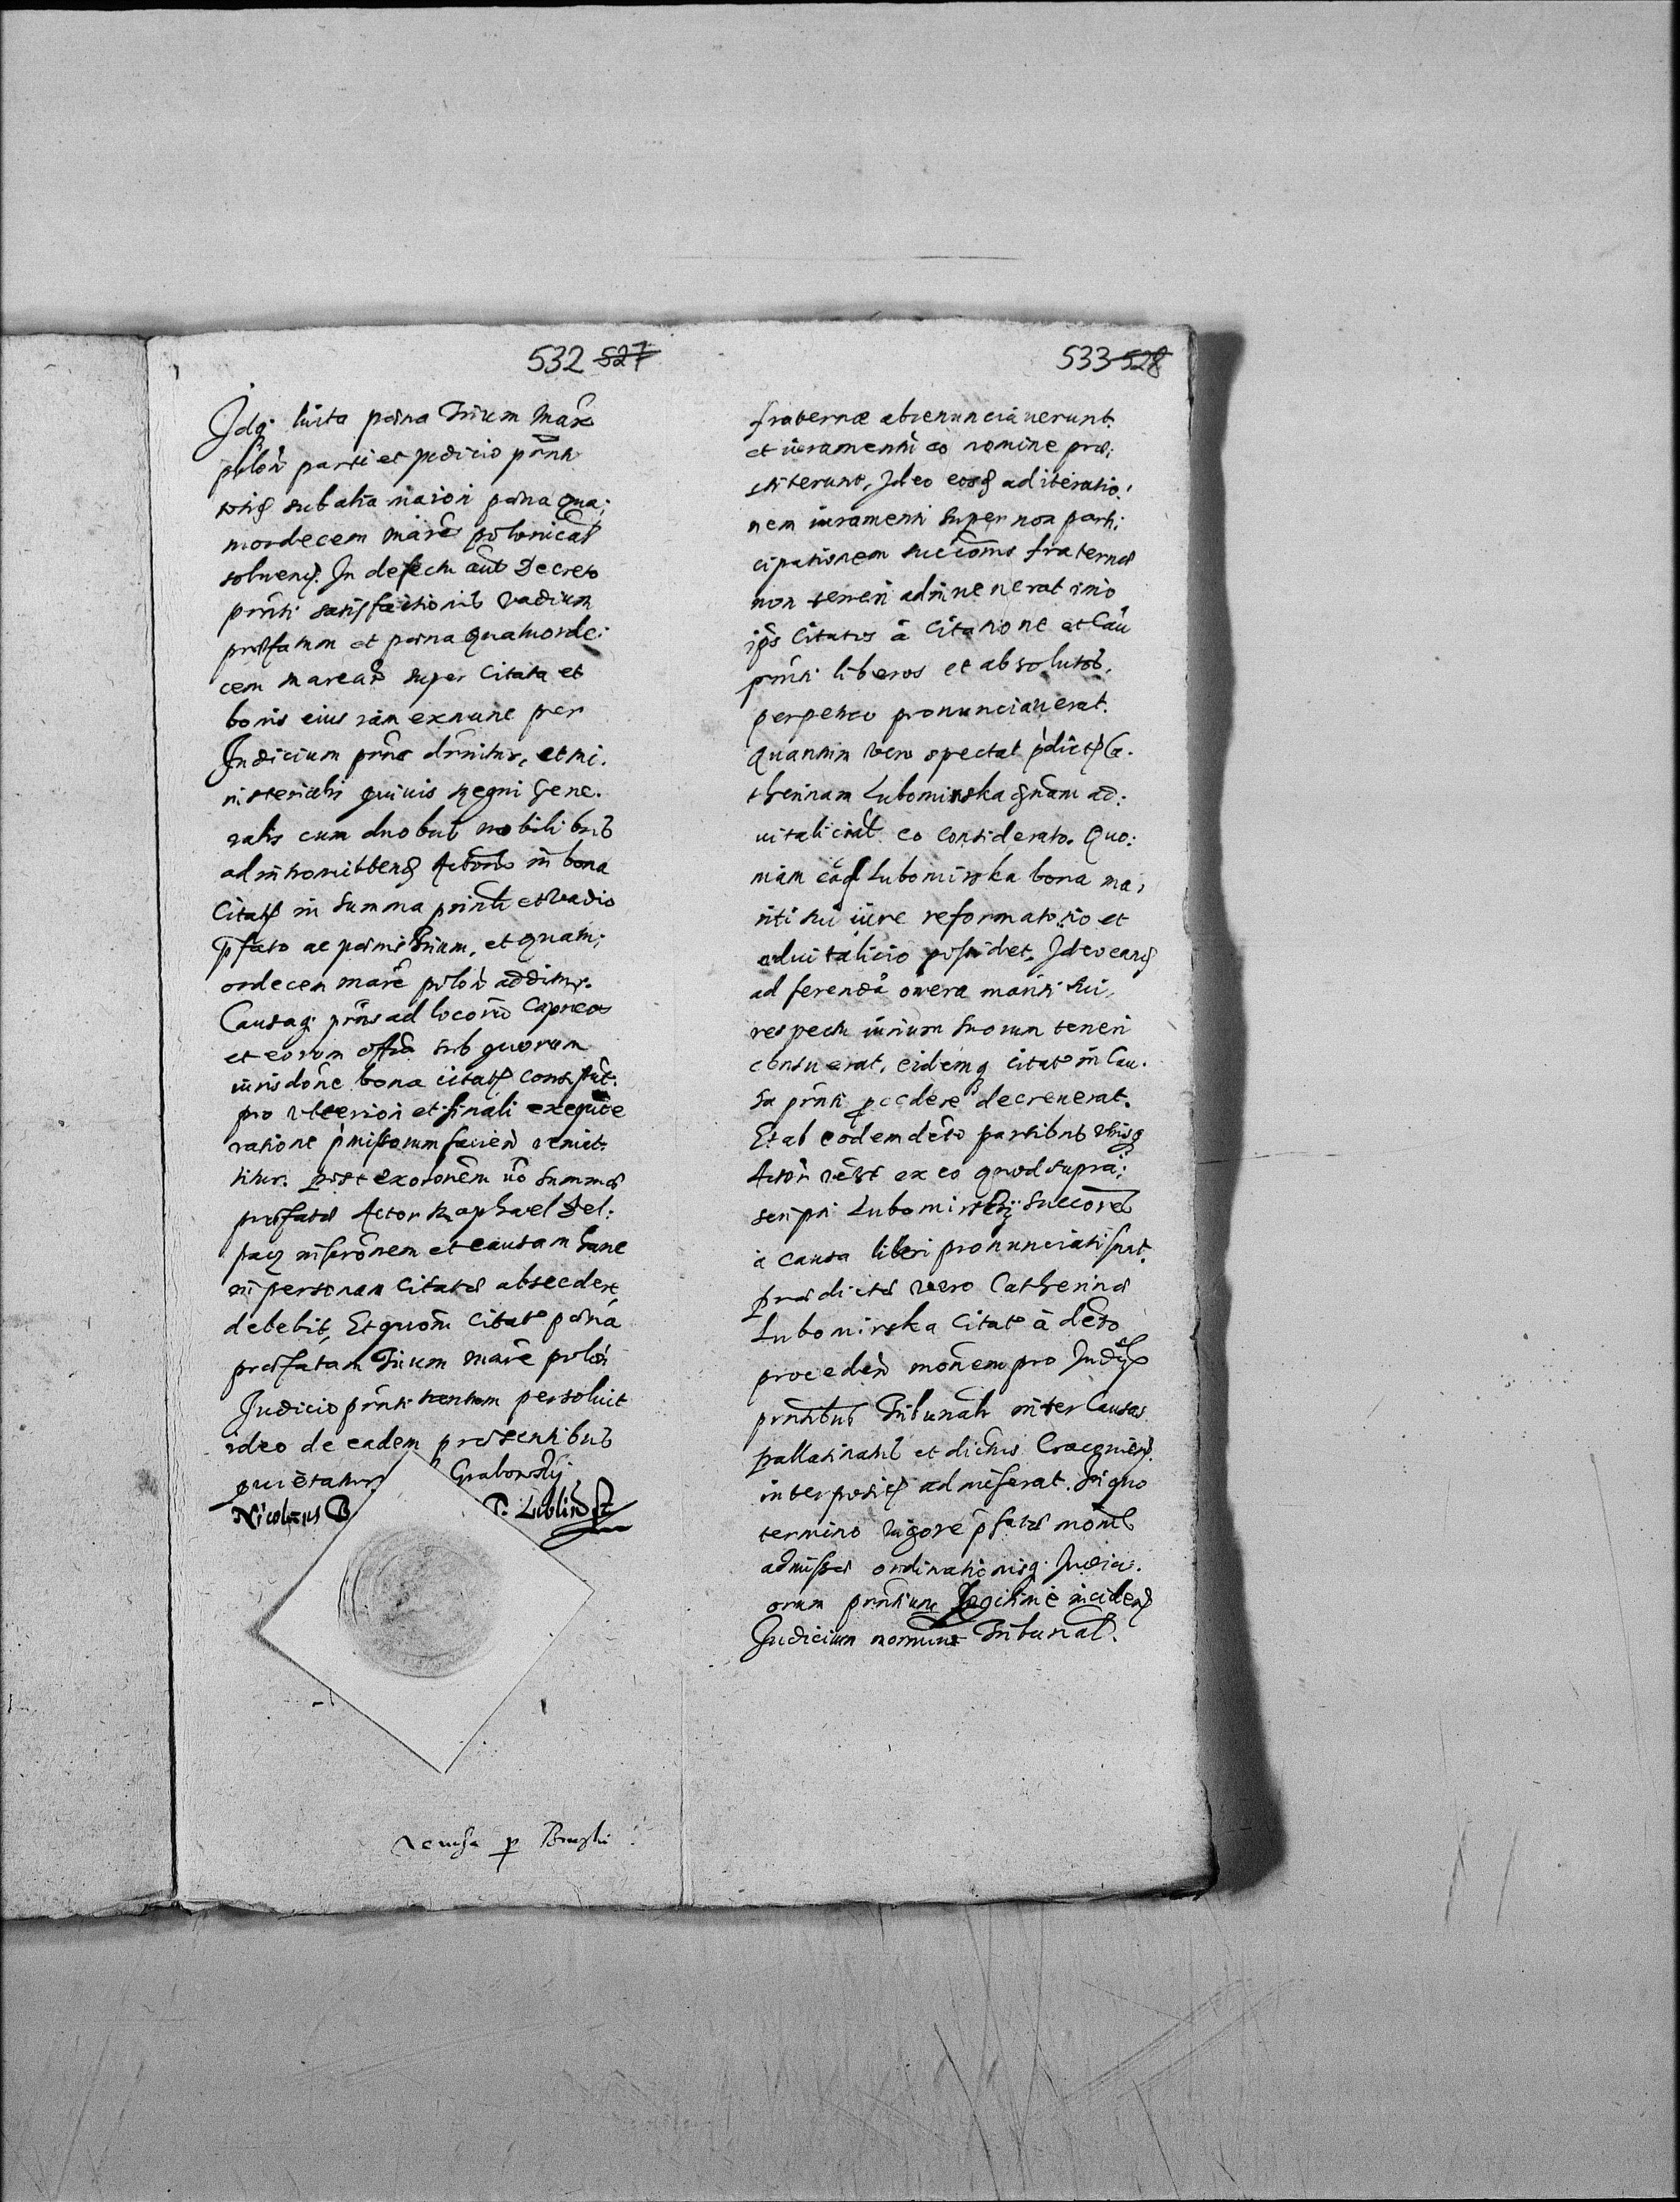 532 527
Idq luita pæna Trium Marc
polon parti et judicio pñti
totiq sub alia maiori pæna Qua;
tuordecem marcas polonicas
soluend. In defectu aut Decreto
pñti satisfactionis vadium
præfatum et pæna quatuorde;
cem marcar super Citata et
bonis eius iam exnunc per
Judicium pñs dernitur, et mi.
nisterialis quiuis Regni Gene.
ralis cum duobus nobilibus
ad intromittend Actoris in bona
Citatæ in summa pñti et vadio
pfato ac pænis Trium, et quatu;
ordecem marc polon additur.
Causaq pñs ad loco Capneos
et eorum offia sub quorum
iurisdone bona citatæ consistut.
pro vlteriori et finali exequõe
ratione pmissorum faciend remit.
titur. post exolonem uo summæ
præfatæ Actor Raphael Sel:
pacz inscronem et causam hanc
in personam Citatæ abscedere
debebit, Et quom Citat pæna
præfatam Trium marc polon
Judicio pñti tantum persoluit
ideo de eadem præsentibus
quietatur
Grabowsky
Nicolaus B
T. Lublin
533 528
fraternæ abrenunciauerunt
et iuramenti eo nomine præ;
stiterunt, Ideo eosq ad iteratio;
nem iuramenti super non parti;
cipationem succoms fraternæ
non teneri adinuenerat imo
ips Citatos à Citatione et Cau
pñti liberos et absolutos,
perpetuo pronunciauerat.
Quantum vero spectat pdict Ca.
therinam Lubomirska qnam ad:
uitalicial eo Considerato. Quo:
niam eãd Lubomirska bona ma,
riti sui iure reformatorio et
aduitalicio possidet, Ideo eanq
ad ferendã onera mariti sui,
respectu iurium suorum teneri
censuerat, eidemq Citat in Cau.
sa pñti pcedere decreuerat.
Et ab eodem dẽto partibus vtrisq
Actori vest ex eo quod supra:
scripti Lubomirsky succores
à causa liberi pronunciati sunt.
prædictæ vero Catherinæ
Lubomirska Citat à deto
proceden monem pro Judys
pñtibus Tribunali inter Causas
pallatinatus et dictus Cracouien.
interposit admiserat. In quo
termino vigore pfatæ monis
admissæ ordinationisq Judici:
orum pñtium Legitimè inciden
Judicium nomine Tribunal.